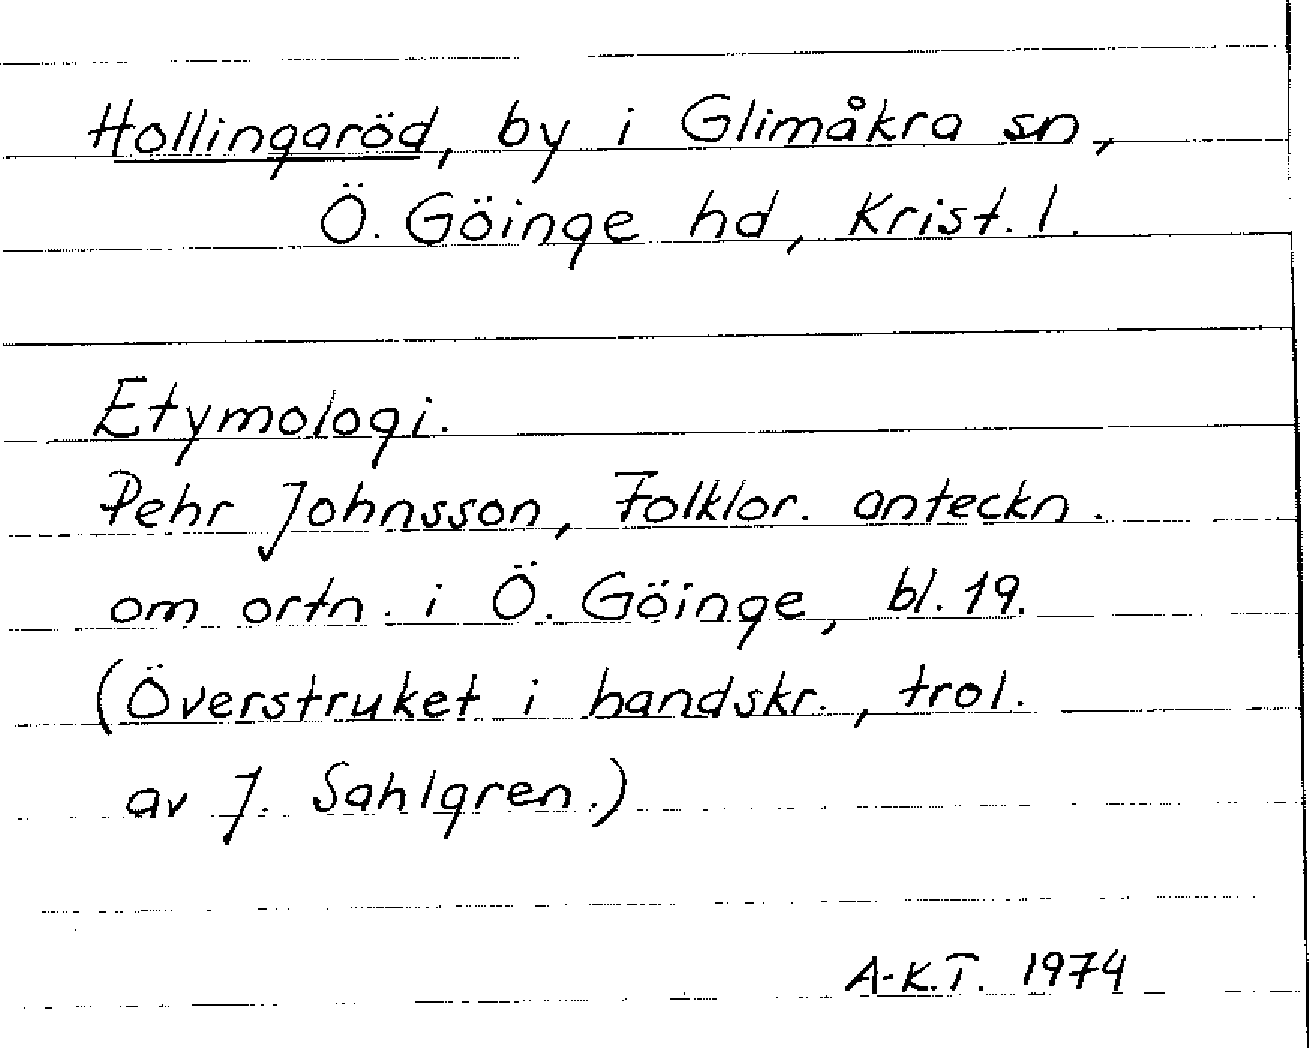 Hollingaröd, by i Glimåkra sn,
Ö. Göinge hd, Krist. l.
Etymologi.
Pehr Johnsson, Folklor. anteckn.
om ortn. i Ö. Göinge, bl. 19.
(Överstruket i handskr., trol.
av J. Sahlgren.)
A-K.T. 1974